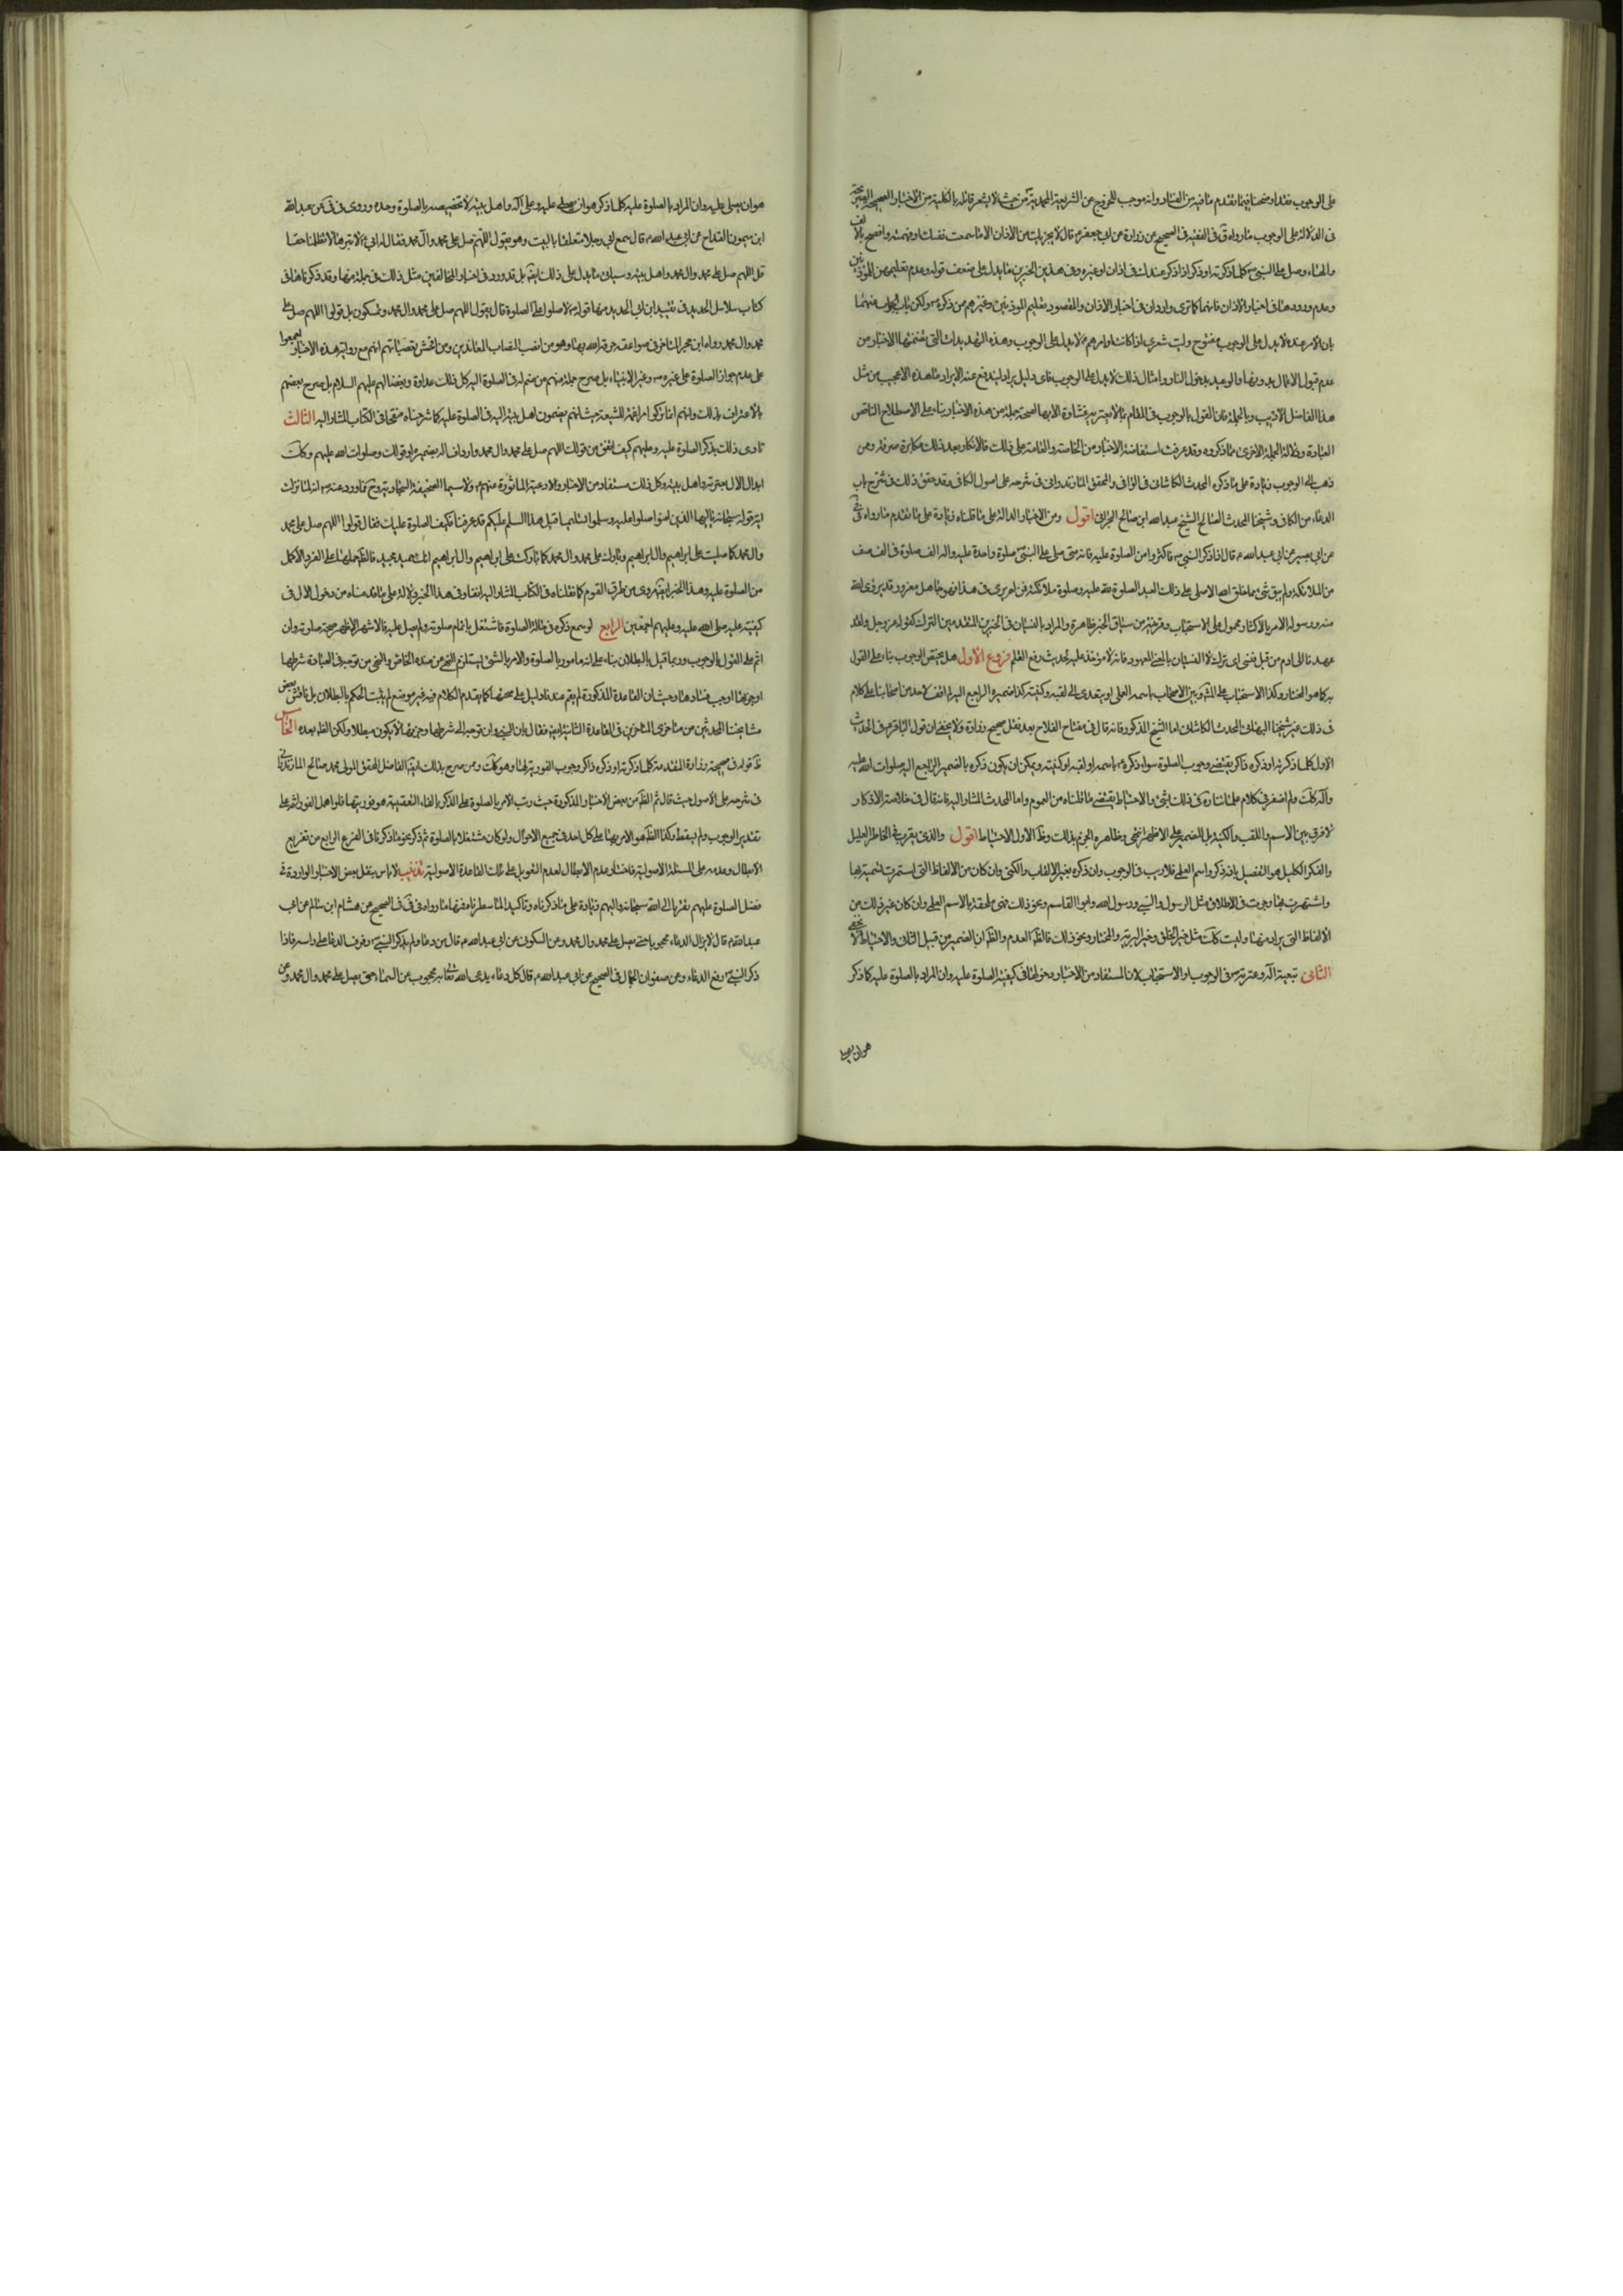 على الوجوب فقد اوضحنا فيما تقدم ما فيه من الفساد وانه موجب للخروج عن الشريعة المحمدية من حيث لا يشعر قائله بالكلية من الاخبار الصحيحة الصريحة
فى الدلالة على الوجوب ما رواه فى الفقيه فى الصحيح عن زرارة عن ابى جعفر قال لا يجزيك من الاذان الا ما اسمعت نفسك او فهمته وافصح بالالف
والهاء وصل على النبى كلما ذكرته او ذكره ذاكر عندك فى اذان او غيره وفى هذين الخبرين ما يدل على ضعف قوله وعدم تعليمه للموذنين
وعدم ورودها فى اخبار الاذان فانهما كما ترى واردان فى اخبار الاذان والمقصود تعليم الموذنين وغيرهم من ذكره ولكن باب الجواب عنهما
بان الامر عنده لا يدل على الوجوب مفتوح وليت شعرى اذا كانت اوامرهم لا تدل على الوجوب وهذه التهديدات التى تضمنتها الاخبار من
عدم قبول الاعمال بدونها والوعيد بدخول النار وامثال ذلك لا يدل على الوجوب فاى دليل يراد ليندفع عنه الايراد ما هذه الا عجيب من مثل
هذا الفاضل الاديب وبالجملة فان القول بالوجوب فى المقام مما لا يعتريه غشاوة الابهام لصحة جملة من هذه الاخبار بناء على الاصطلاح الناقص
العيار وظلالة الجملة الاخرى مما ذكروه وقد عرفت استفاضة الاخبار من الخاصة والعامة على ذلك فالانكار بعد ذلك مكابرة صرفة وممن
ذهب الى الوجوب زيادة على ما ذكره المحدث الكاشانى فى الوافى والمحقق المازندرانى فى شرحه على اصول الكافى وقد حقق ذلك فى شرح باب
الدعاء من الكافى وشيخنا المحدث الصالح الشيخ عبد الله ابن صالح البحرانى اقول ومن الاخبار الدالة على ما قلناه زيادة على ما تقدم ما رواه فى
عن ابى بصير عن ابى عبد الله قال اذا ذكر النبى فاكثروا من الصلوة عليه فانه من صلى على النبى صلوة واحدة صلى الله عليه الف صلوة فى الف صف
من الملائكة ولم يبق شئ مما خلق الله الا صلى على ذلك العبد لصلوة الله عليه وصلوة ملائكته فمن لم يرغب فى هذا فهو جاهل مغرور قد برئ الله
منه ورسوله الامر بالاكثار محمول على الاستحباب وقرينته من سياق الخبر ظاهرة والمراد بالنسيان فى الخبرين المتقدمين الترك كقوله عز وجل ولقد
عهدنا الى ادم من قبل فنسى اى ترك لا النسيان بالمعنى المعهود فانه لا مؤاخذة عليه لحديث رفع القلم فروع الاول هل يختص الوجوب بناء على القول
به كما هو المختار وكذا الاستحباب على المشهور بين الاصحاب باسمه العلمى او يتعدى الى لقبه وكنيته وكذا ضميره الراجع اليه لم اقف لاحد من اصحابنا على كلام
فى ذلك غير شيخنا البهائى والمحدث الكاشانى اما الشيخ المذكور فانه قال فى مفتاح الفلاح بعد نقل صحيح زرارة ولا يخفى ان قول الباقر فى الحديث
الاول كلما ذكرته او ذكره ذاكر يقتضى وجوب الصلوة سواء ذكره باسمه او لقبه او كنيته ويمكن ان يكون ذكره بالضمير الراجع اليه صلوات الله عليه
وآله كذلك ولم اضفر فى كلام علمائنا فى ذلك بشئ والاحتياط يقتضى ما قلناه من العموم واما المحدث المشار اليه فانه قال فى خلاصة الاذكار
لا فرق بين الاسم واللقب والكنية بل الضمير على الاظهر انتهى وظاهره الجزم بذلك وظاهر الاول الاحتياط اقول والذى يقرب فى الخاطر العليل
والفكر الكليل هو التفصيل بانه ان ذكر باسمه العلمى فلا ريب فى الوجوب وان ذكره بغيره من الالقاب والكنى وان كان من الالفاظ التى استمرت تسميته بها
واشتهرت بها وجرت فى الاطلاق مثل الرسول والنبى ورسول الله وابو القاسم ونحو ذلك فهى ملحقة بالاسم العلمى وان كان غير ذلك من
الالفاظ التى يراد منها وليست كذلك مثل خير الخلق وخير البرية والمختار ونحو ذلك فالظاهر العدم والظاهر ان الضمير من قبيل الثانى والاحتياط لا يخفى
الثانى تبعية آله وعترته فى الوجوب او الاستحباب لان المستفاد من الاخبار ودخولها فى كيفية الصلوة عليه وان المراد بالصلوة عليه كما ذكر
هو ان يصلى
هو ان يصلى عليه وان المراد بالصلوة عليه كلما ذكر هو ان يصلى عليه وعلى آله واهل بيته لا تخصيصه بالصلوة وحده وروى فى عن عبد الله
ابن ميمون القداح عن ابى عبد الله قال سمع ابى رجلا متعلقا بالبيت وهو يقول اللهم صل على محمد فقال له ابى لا تبترها لا تظلمنا حقنا
قل اللهم صل على محمد واهل بيته وسياق ما يدل على ذلك بل قد ورد فى اخبار المخالفين مثل ذلك فى جملة منها وقد ذكرناها فى
كتاب سلاسل الحديد فى تقييد ابن ابى الحديد منها قوله لا تصلوا على الصلوة قال يقول اللهم صل على محمد وال محمد وتسكتون بل قولوا اللهم صل على
محمد وال محمد رواه ابن حجر المتاخر فى صواعقه حرقه الله بها وهو من انصب النصاب المعاندين ومن افحش تعصباتهم انهم مع رواية هذه الاخبار اجمعوا
على عدم جواز الصلوة على غيره وغير الانبياء بل صرح جملة منهم من ضم اله فى الصلوة اليه كل ذلك عداوة وبغضا لهم عليهم السلام بل صرح بعضهم
بالاعتراف بذلك وانهم انما تركوا مراغمة للشيعة حيث انهم يضمون اهل بيته اليه فى الصلوة عليه كما شرحناه منقحا فى الكتاب المشار اليه الثالث
تادى ذلك بذكر الصلوة عليه وعليهم كيف اتفق من قولك اللهم صل على محمد وال محمد وارداف اله بضميره او قولك وصلوات الله عليهم وكذا
ابدال الال بعترته واهل بيته وكل ذلك مستفاد من الاخبار والادعية الماثورة عنهم ولا سيما الصحيفة السجادية وورد عنه انه لما نزلت
قوله سبحانه يا ايها الذين امنوا صلوا عليه وسلموا تسليما قيل هذا السلم عليكم قد عرفنا فكيف الصلوة عليك فقال قولوا اللهم صل على محمد
وال محمد كما صليت على ابراهيم وال ابراهيم وبارك على محمد وال محمد كما باركت على ابراهيم وال ابراهيم انك حميد مجيد فالظاهر حملها على الفرد الاكمل
من الصلوة عليه وهذا الخبر روى من طرق القوم كما نقلناه فى الكتاب المشار اليه وفى هذا الخبر دلالة على ما قدمناه من دخول الال فى
كيفية عليه صلى الله عليه وعليهم اجمعين الرابع لو سمع ذكره فى حالة الصلوة فاشتغل باتمام صلوته ولم يصل عليه فالاشهر الاظهر صحة صلوته وان
اثم على القول بالوجوب وربما قيل بالبطلان بناء على انه مامور بالصلوة والامر بالشئ يستلزم النهى عن ضده الخاص والنهى متى توجه فى العبادة شرطها
او جزئها اوجب فسادها وحيث ان القاعدة المذكورة لم يقم عندنا دليل على صحتها كما تقدم الكلام فيه فى غير موضع لم يثبت الحكم بالبطلان بل ناقش بعض
مشايخنا المحدثين من متاخرى المتاخرين فى القاعدة الثانية فقال بان النهى وان توجه الى شرطها وجزئها لا يكون مبطلا ولكن الظاهر بعده الخامس
قوله فى صحيحة زرارة المتقدمة كلما ذكرته او ذكره ذاكر وجوب الفورية وهو كذلك وممن صرح بذلك الفاضل المحقق المولى محمد صالح المازندرانى
فى شرحه على الاصول حيث قال ثم الظاهر من بعض الاخبار المذكورة حيث رتب الامر بالصلوة على الذكر بالفاء التعقيبية هو فوريتها فلو اهمل الفور اثم على
تقدير الوجوب ولم يسقط وكذا الظاهر هو الامر بها على كل احد فى جميع الاحوال ولو كان مشتغلا بالصلوة ثم ذكر نحو ما ذكرنا فى الفرع الرابع من تفريع
الابطال وعدمه على المسئلة الاصولية فاختار عدم الابطال لعدم التعويل على تلك القاعدة الاصولية تذنيب لا باس بنقل بعض الاخبار الواردة فى
فضل الصلوة عليهم تقربا الى الله سبحانه واليهم وزيادة على ما ذكرناه وتاكيدا لما سطرناه فمنها ما رواه فى فى الصحيح عن هشام ابن سالم عن ابى
عبد الله قال لا يزال الدعاء محجوبا حتى يصلى على محمد وال محمد وعن السكونى عن ابى عبد الله قال من دعا ولم يذكر النبى رفرف الدعا على راسه فاذا
ذكر النبى رفع الدعاء وعن صفوان الجمال فى الصحيح عن ابى عبد الله قال كل دعاء يدعى الله تعالى به محجوب عن السماء حتى يصلى على محمد وال محمد وعن